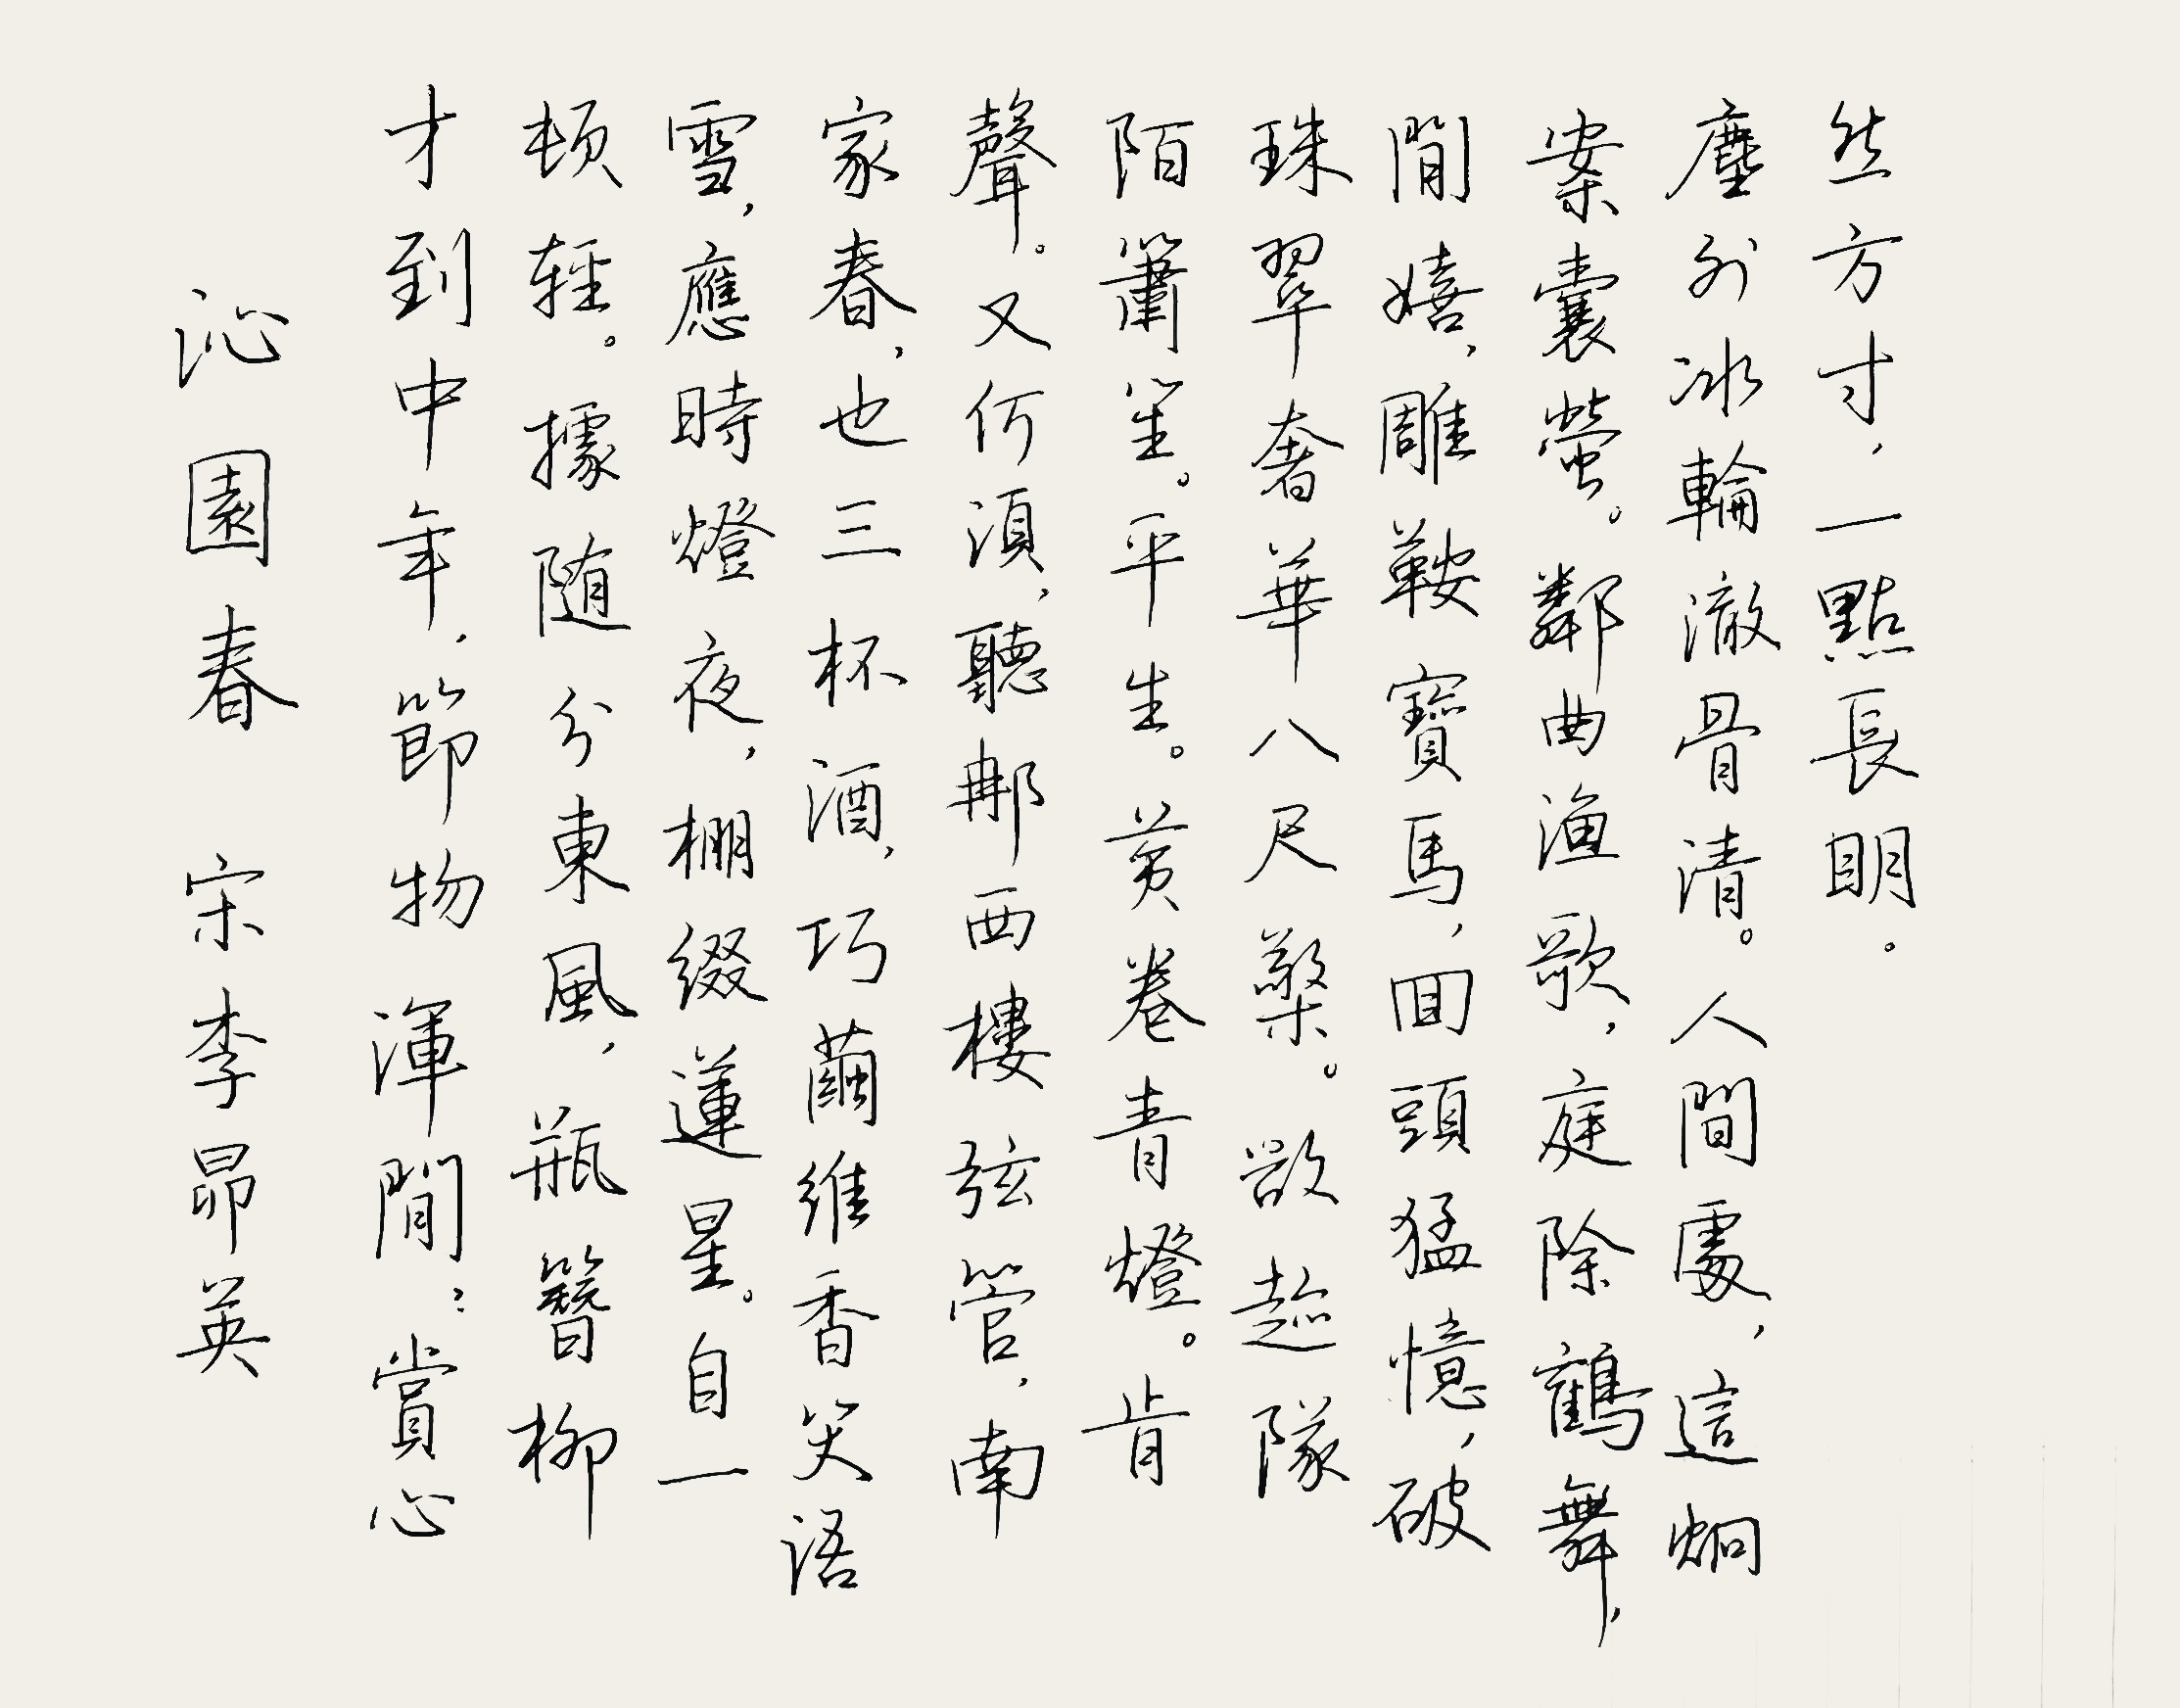 沁園春 宋李昴英
才到中年，節物渾閒：賞心
頓輕。據随分東風，瓶簪柳
雪，應時燈夜，棚綴蓮星。自一
家春，也三杯酒，巧繭維香笑语
聲。又何須，聽那西樓弦管，南
陌簫笙。平生。黄卷青燈。肯
珠翠奢華八尺檠。欲趂隊
閒嬉，雕鞍寶馬，回頭猛憶，破
案囊螢。鄰曲渔歌，庭除鶴舞，
塵外冰輪澈骨清。人間處，這炯
然方寸，一點長明。